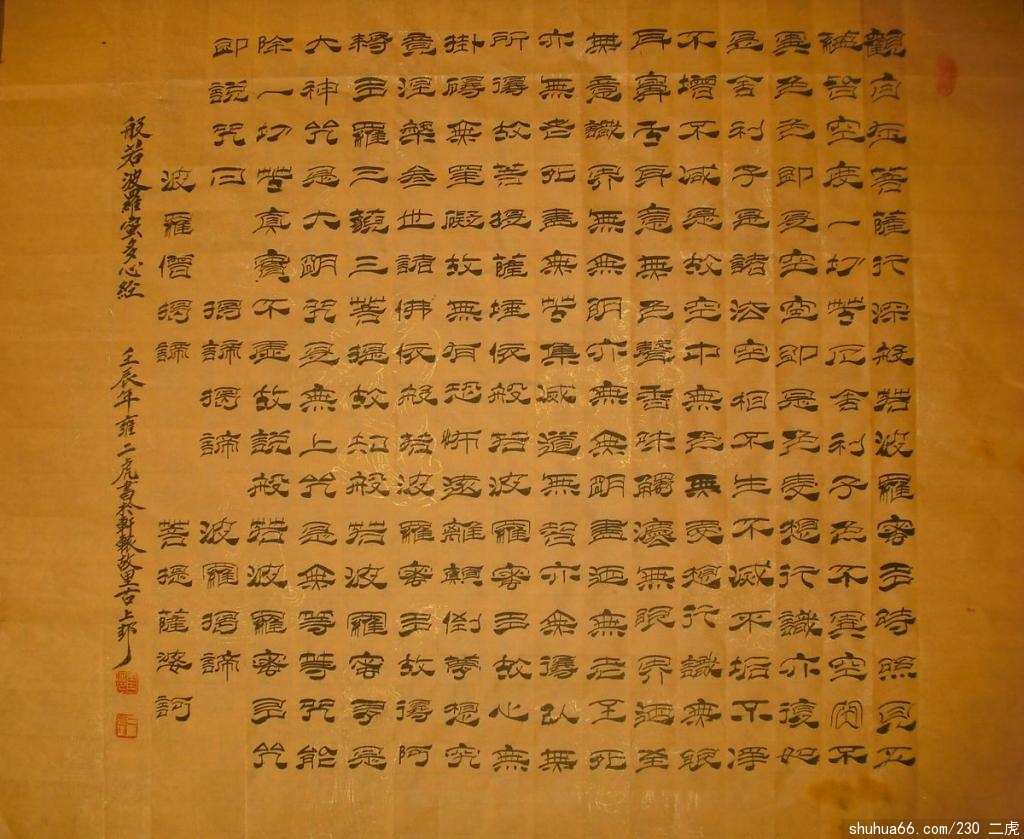 觀自在菩薩行深般若波羅密多時照見五
蘊皆空度一切苦厄舍利子色不異空空不
異色色即是空空即是色受想行識亦復如
是舍利子是諸法空相不生不滅不垢不淨
不增不减是故空中無色無受想行識無眼
耳鼻舌身意無色聲香味觸灋無眼界廼至
無意識界無無明亦無無明盡廼無老至死
亦無老死盡無苦集滅道無智亦無得以無
所得故菩提薩埵依般若波羅密多故心無
掛礙無罣礙故無有恐怖遠離顛倒夢想究
竟涅槃叁世諸佛依般若波羅密多故得阿
耨多羅三藐三菩提故知般若波羅密多是
大神咒是大明咒是無上咒是無等等咒能
除一切苦真實不虛故說般若波羅密多咒
即說咒曰 揭諦揭諦 波羅揭諦
波羅僧揭諦 菩提薩婆訶
般若波羅蜜多心經 壬辰年雍二虎書於軒轅故里古上邽
shuhua66.com/230 二虎